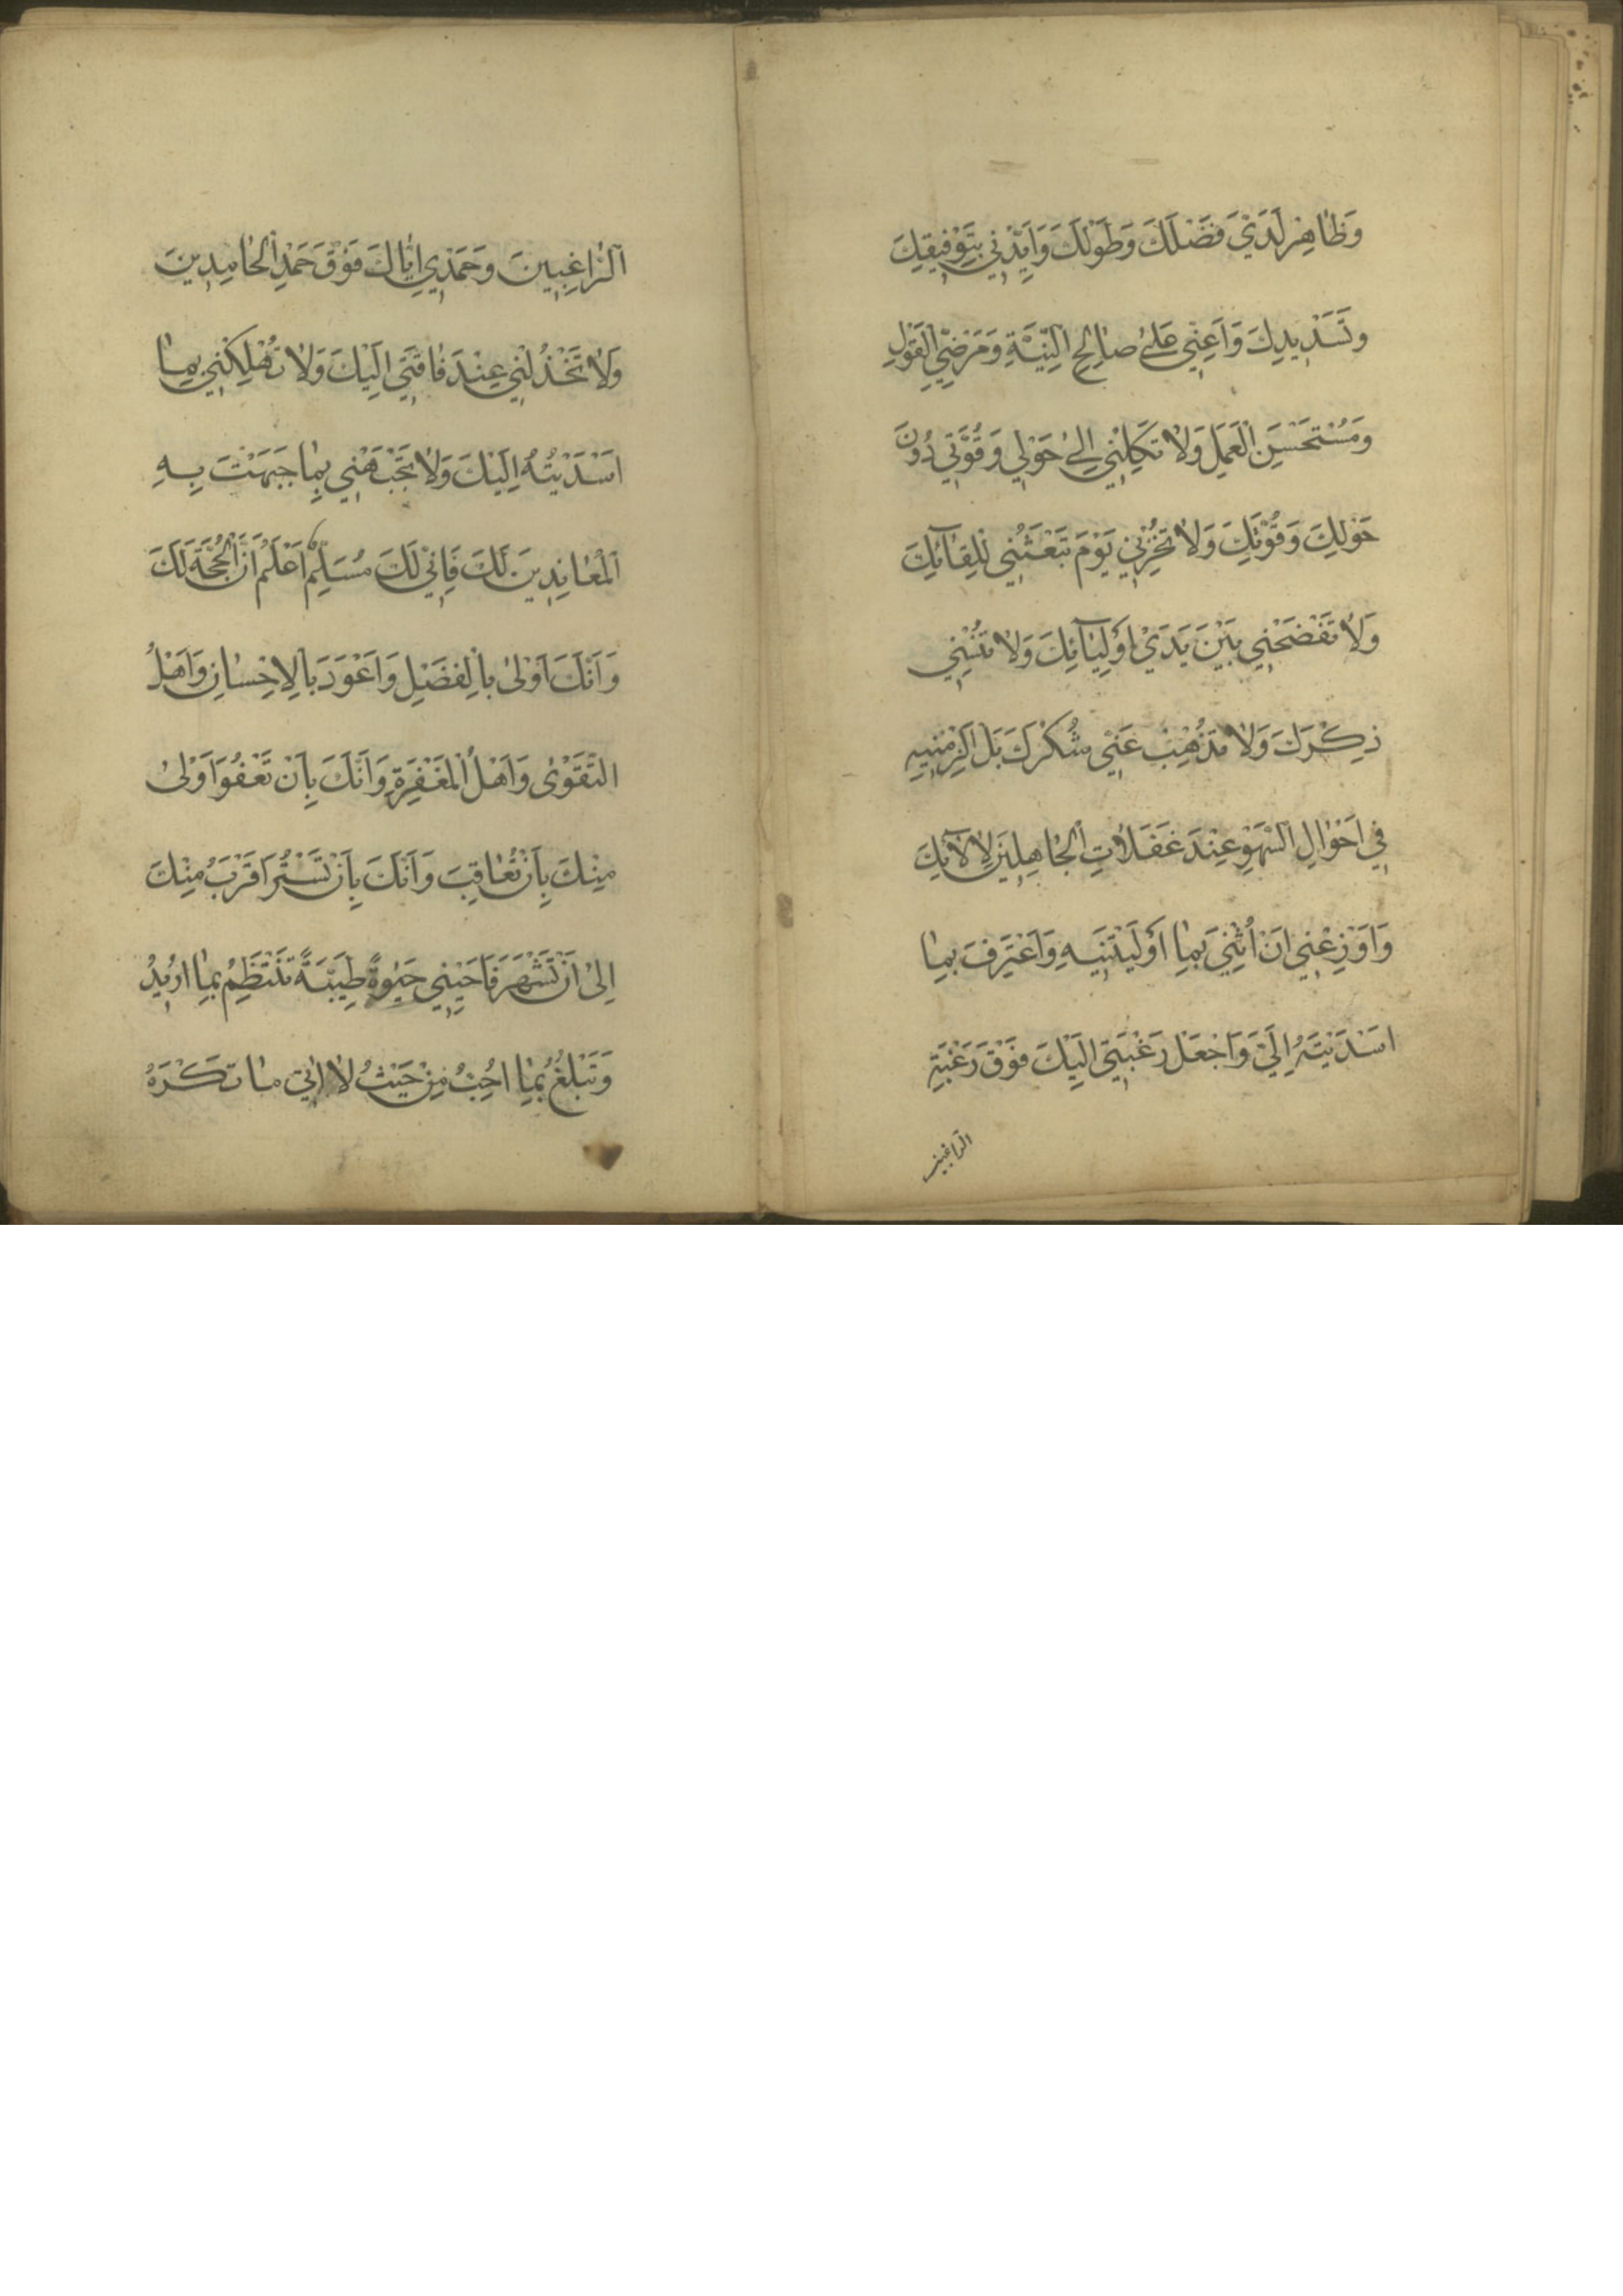 وَظَاهِرْ لَدَيَّ فَضْلَكَ وَطَوْلَكَ وَاَيِّدْنِي بِتَوْفِيقِكَ
وَتَسْدِيدِكَ وَاَعِنِّي عَلىٰ صَالِحِ النِّيَّةِ وَمَرْضِيِّ الْقَوْلِ
وَمُسْتَحْسَنِ الْعَمَلِ وَلَا تَكِلْنِي اِلىٰ حَوْلِي وَقُوَّتِي دُونَ
حَوْلِكَ وَقُوَّتِكَ وَلَا تُخْزِنِي يَوْمَ تَبْعَثُنِي لِلِقَآئِكَ
وَلَا تَفْضَحْنِي بَيْنَ يَدَيْ اَوْلِيَآئِكَ وَلَا تُنْسِنِي
ذِكْرَكَ وَلَا تُذْهِبْ عَنِّي شُكْرَكَ بَلْ اَلْزِمْنِيهِ
فِي اَحْوَالِ السَّهْوِ عِنْدَ غَفَلَاتِ الْجَاهِلِينَ لِاٰلَآئِكَ
وَاَوْزِعْنِي اَنْ اُثْنِيَ بِمَا اَوْلَيْتَنِيهِ وَاَعْتَرِفَ بِمَا
اَسْدَيْتَهُ اِلَيَّ وَاجْعَلْ رَغْبَتِي اِلَيْكَ فَوْقَ رَغْبَةِ
الراغبين
الرَّاغِبِينَ وَحَمْدِي اِيَّاكَ فَوْقَ حَمْدِ الْحَامِدِينَ
وَلَا تَخْذُلْنِي عِنْدَ فَاقَتِي اِلَيْكَ وَلَا تُهْلِكْنِي بِمَا
اَسْدَيْتُهُ اِلَيْكَ وَلَا تَجْبَهْنِي بِمَا جَبَهْتَ بِهِ
الْمُعَانِدِينَ لَكَ فَاِنِّي لَكَ مُسَلِّمٌ اَعْلَمُ اَنَّ الْحُجَّةَ لَكَ
وَاَنَّكَ اَوْلىٰ بِالْفَضْلِ وَاَعْوَدُ بِالْاِحْسَانِ وَاَهْلُ
التَّقْوٰى وَاَهْلُ الْمَغْفِرَةِ وَاَنَّكَ بِاَنْ تَعْفُوَ اَوْلىٰ
مِنْكَ بِاَنْ تُعَاقِبَ وَاَنَّكَ بِاَنْ تَسْتُرَ اَقْرَبُ مِنْكَ
اِلىٰ اَنْ تَشْهَرَ فَاَحْيِنِي حَيٰوةً طَيِّبَةً تَنْتَظِمُ بِمَا اُرِيدُ
وَتَبْلُغُ بِمَا اُحِبُّ مِنْ حَيْثُ لَا اٰتِي مَا تَكْرَهُ